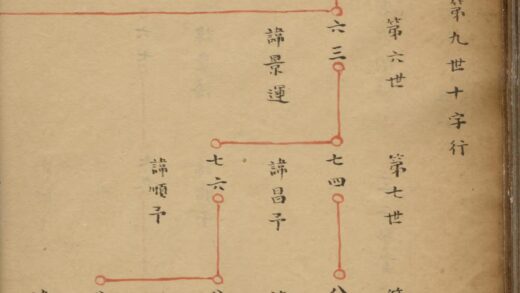 第九世十字行
第六世
六三
諱景運
第七世
七四
諱昌予
七六
諱順予